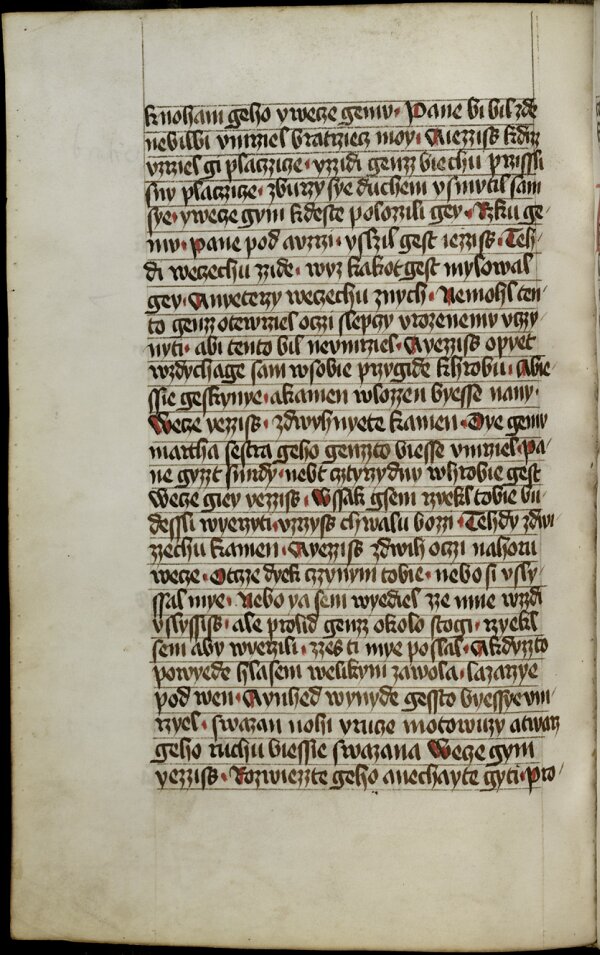 k noham geho y wecze gemv· Pane bi bil zde
nebilbi vmrziel bratrziecz moy· A iezziss kdiz
vzrziel gi placzicze· y zzidi genzz biechu przissli
sny placzicze· zburzy sye duchem y smvtil sam
sye· y wecze gym kdeste polozzili gey· Rzku ge-
mv· Pane pod a vzrzi· y slzil gest iezziss· Teh-
di weczechu zzide· wyz kakot gest mylowal
gey· A nyeterzy weczechu z nych· Nemohl ten-
to genzz otewrziel oczi slepczy vrozenemv vczy-
nyti· abi tento bil nevmrziel· A yezziss opyet
wzdychage sam w sobie przygide k hrobu· A bie-
ssie geskynye· a kamen wlozzen byesse na ny·
Wecze yezziss· zdwyhnyete kamen· Dye gemv
martha sestra geho genzzto biesse vmrziel· Pa-
ne gyzzt smrdy· nebt cztyrzydny w hrobie gest
Wecze giey yezziss· Wssak gsem rzyekl tobie bu-
dessli wyerzyti· vzrzyss chwalu bozzi· Tehdy zdwi-
zzechu kamen· A yezziss zdwih oczi nahoru
wecze· Otcze dyek czzynym tobie· nebo si vsly-
ssal mye· Nebo ya sem wyediel zze mne wzdi
vslyssiss· ale pro lid genzz okolo stogi· rzyekl
sem aby wyerzili· zzes ti mye poslal· A kdyzzto
powyede hlasem welikym zawola· lazarzye
pod wen· A ynhed wynyde gessto byessye vm-
rzyel· swazan nohi y rucze motowuzy a twarz
geho ruchu biessie swazana Wecze gym
yezziss· Rozwiezzte geho a nechayte gyti· Pro-